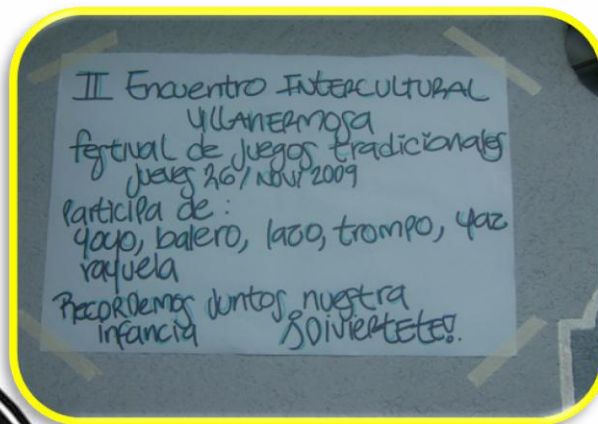 II Encuentro INTERCULTURAL
VILLAHERMOSA
festival de juegos tradicionales
jueves 26/NOV/2009
Participa de:
yoyo, balero, lazo, trompo, yaz
rayuela
RECORDEMOS Juntos nuestra
infancia ¡DIVIERTETE!